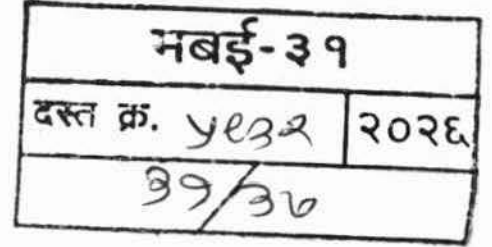 मबई-३१
दस्त क्र. ५९३२ २०२६
३१/३७